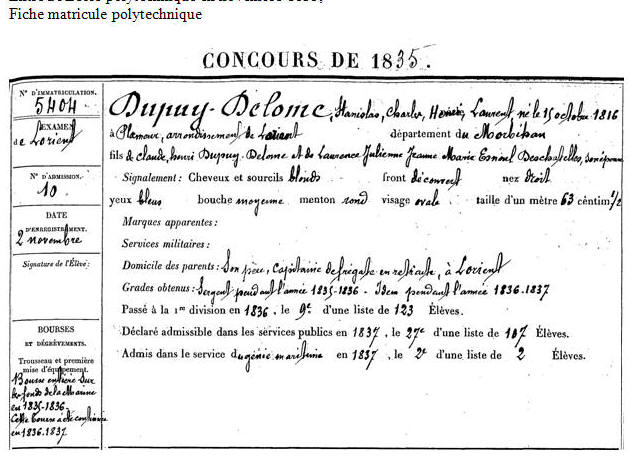 Fiche matricule polytechnique
CONCOURS DE 1835.
N° D'IMMATRICULATION.
5404
EXAMEN
de Lorient
N° D'ADMISSION.
10
DATE
D'ENREGISTREMENT.
2 novembre
Signature de l'Élève:
BOURSES
ET DÉGRÈVEMENTS.
Trousseau et première
mise d'équipement.
Bourse entière sur
les fonds de la Marine
en 1835-1836.
Cette bourse a été continuée
en 1836-1837
Dupuy-Delome, Stanislas, Charles, Henri, Laurent né le 15 octobre 1816
à Plœmeur, arrondissement de Lorient département du Morbihan
fils de Claude, henri Dupuy-Delome et de Laurence Julienne Jeanne Marie Esnoul Deschatelles, son épouse
Signalement: Cheveux et sourcils blonds front découvert nez droit
yeux bleus bouche moyenne menton rond visage ovale taille d'un mètre 63 céntim. 1/2
Marques apparentes:
Services militaires:
Domicile des parents: Son père, Capitaine de frégate en retraite, à Lorient
Grades obtenus: Sergent pendant l'année 1835-1836 - Idem pendant l'année 1836-1837
Passé à la 1re division en 1836, le 9e d'une liste de 123 Élèves.
Déclaré admissible dans les services publics en 1837, le 27e d'une liste de 107 Élèves.
Admis dans le service du génie maritime en 1837, le 2e d'une liste de 2 Élèves.